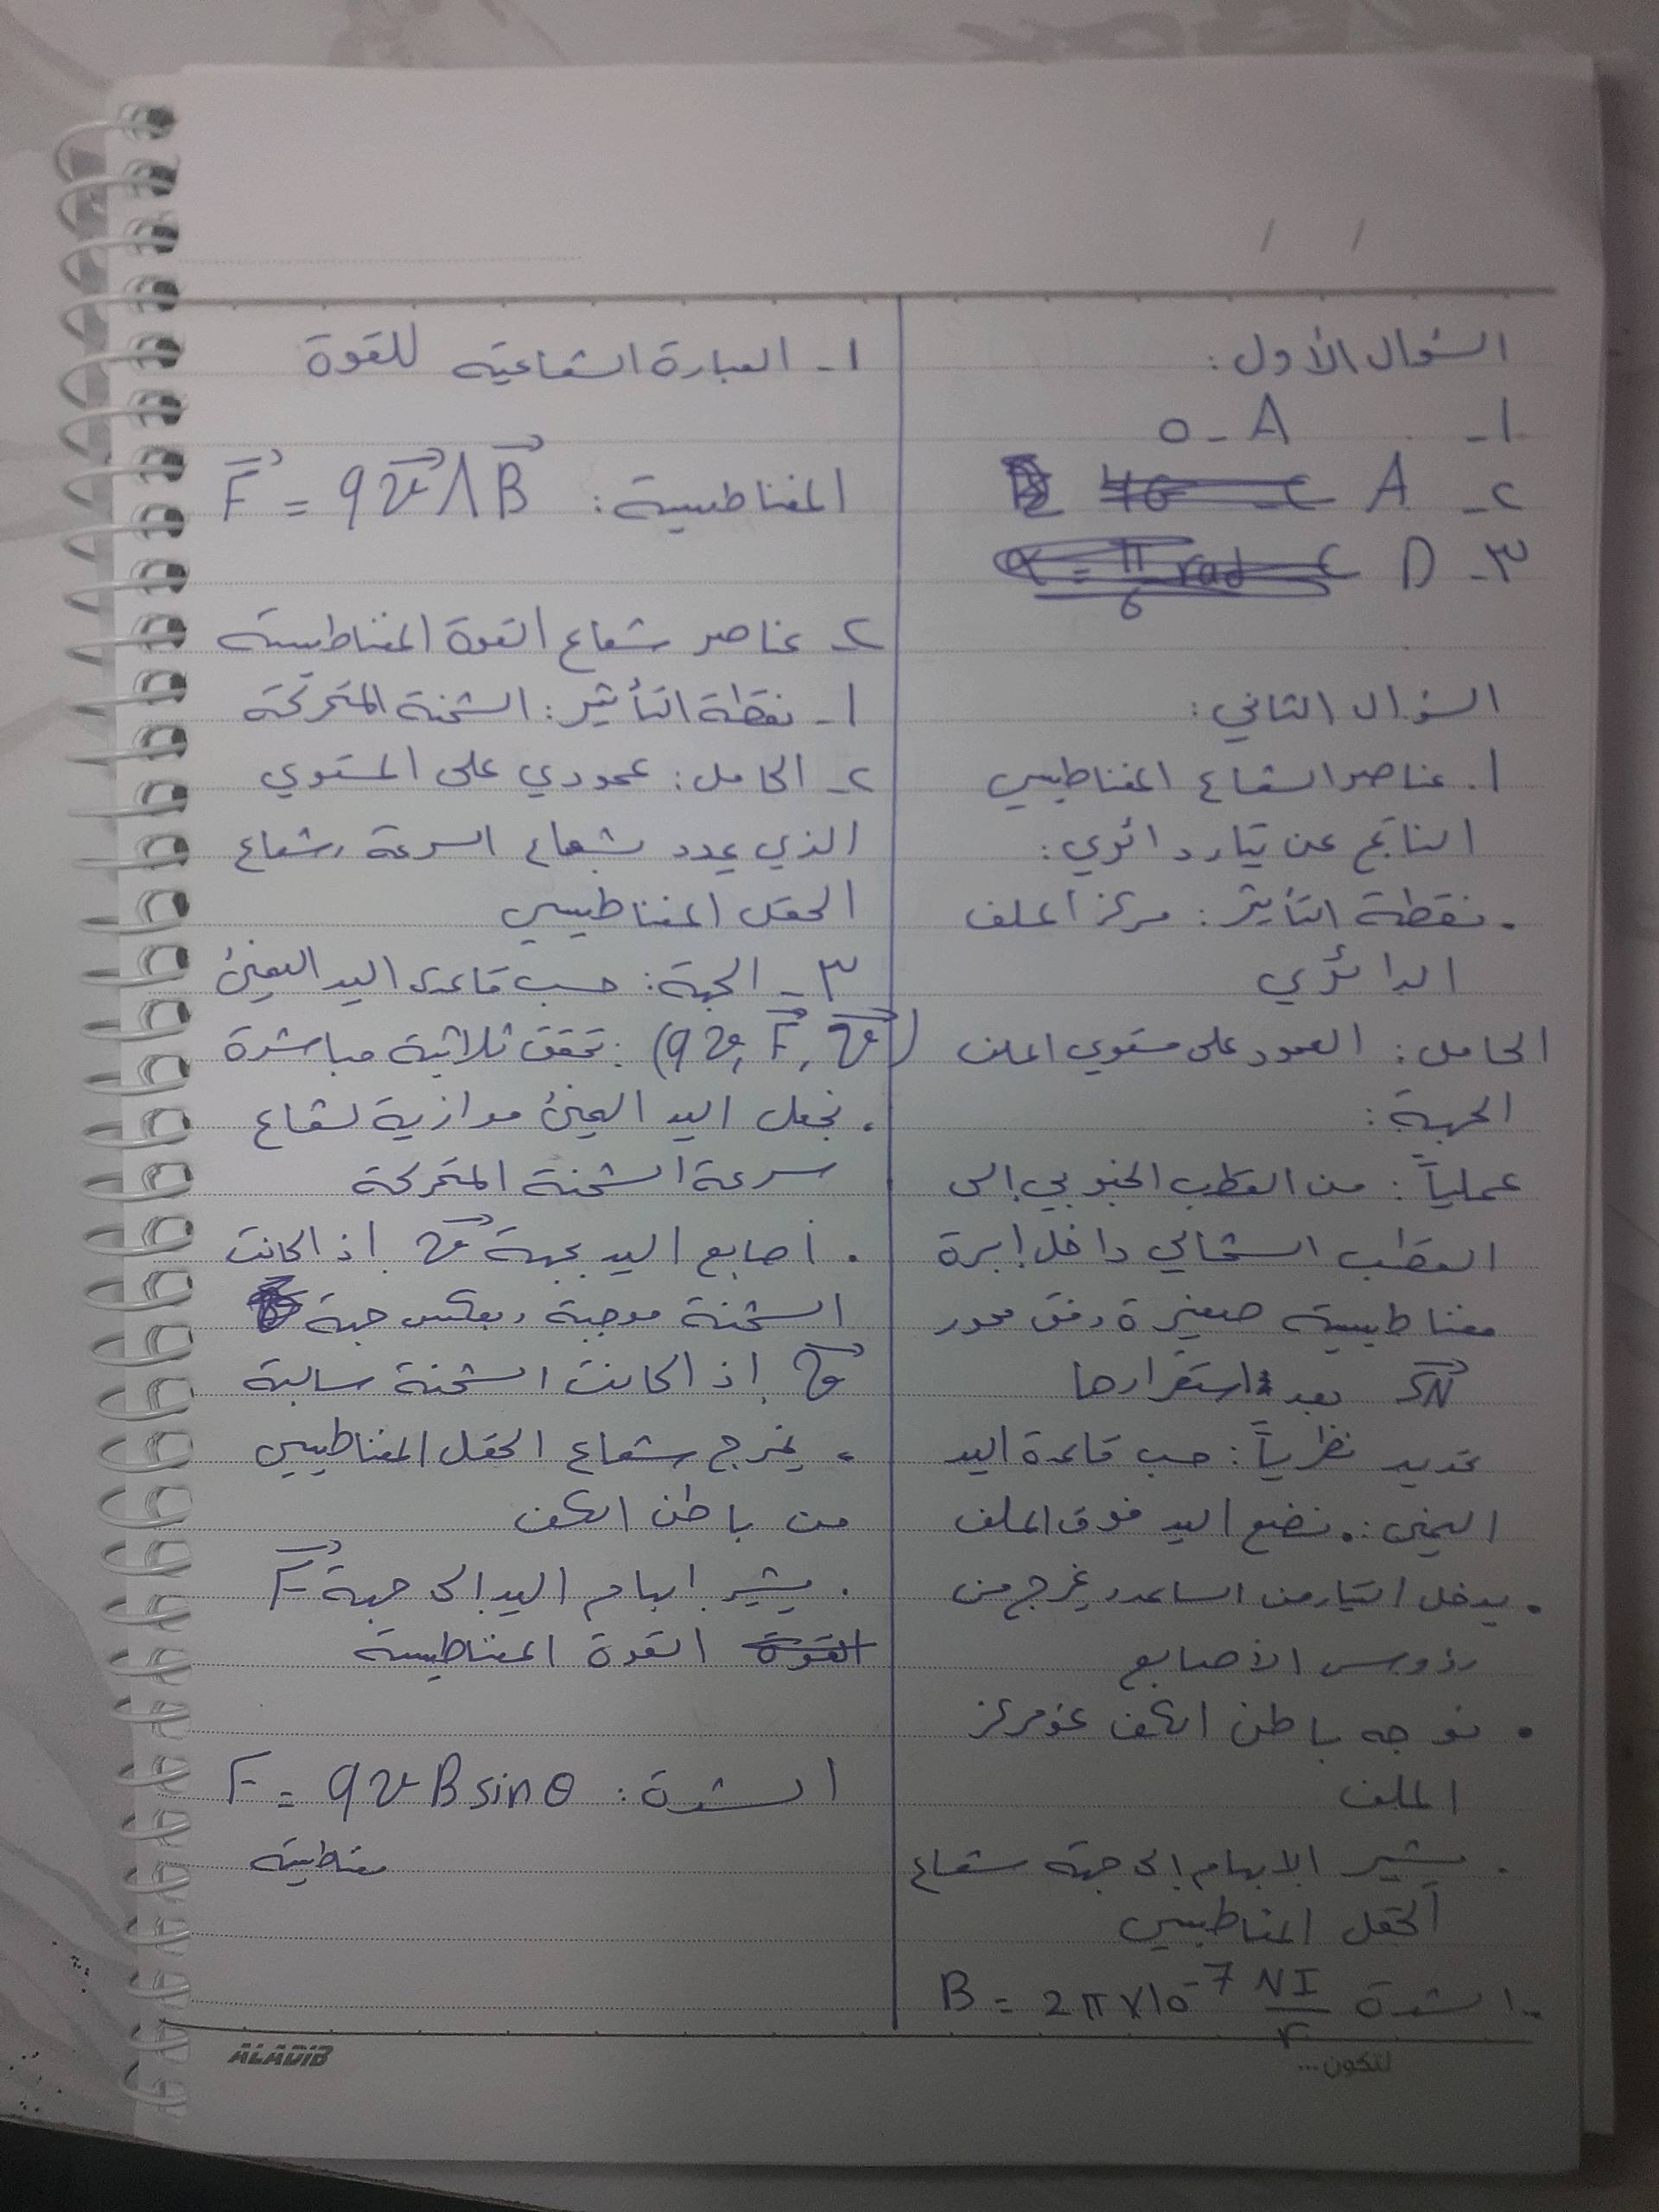 السؤال الأول:
1- A - 0
2- A
3- D
السؤال الثاني:
1. عناصر الشعاع المغناطيسي
الناتج عن تيار دائري:
. نقطة التأثير: مركز الملف
الدائري
الحامل: العمود على مستوي الملف
الجهة:
عملياً: من القطب الجنوبي إلى
القطب الشمالي داخل إبرة
مغناطيسية صغيرة وفق محور
SN بعد استقرارها
تحديد نظرياً: حسب قاعدة اليد
اليمنى: . نضع اليد فوق الملف
. يدخل التيار من الساعد ويخرج من
رؤوس الأصابع
. نوجه باطن الكف نحو مركز
الملف
. يشير الإبهام إلى جهة شعاع
الحقل المغناطيسي
الشدة B = 2π×10⁻⁷ NI/r
لتكون...
١- العبارة الشعاعية للقوة
المغناطيسية: F = qv Λ B
٢- عناصر شعاع القوة المغناطيسية
١- نقطة التأثير: الشحنة المتحركة
٢- الحامل: عمودي على المستوي
الذي يحدد بشعاع السرعة وشعاع
الحقل المغناطيسي
٣- الجهة: حسب قاعدة اليد اليمنى
تحقق ثلاثية مباشرة
. نجعل اليد اليمنى موازية لشعاع
سرعة الشحنة المتحركة
. أصابع اليد بجهة v إذا كانت
الشحنة موجبة وبعكس جهة
v إذا كانت الشحنة سالبة
. يخرج شعاع الحقل المغناطيسي
من باطن الكف
. يشير ابهام اليد الى جهة F
القوة القوة المغناطيسية
الشدة: F = qvB sinθ
مغناطيسية
ALADIB